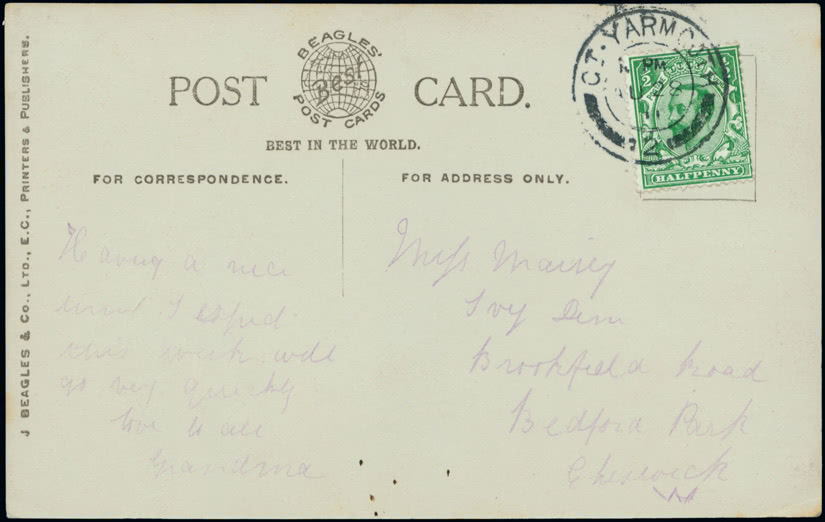 J BEAGLES & CO., LTD., E.C., PRINTERS & PUBLISHERS.
POST CARD.
BEAGLES'
Best
POST CARDS
BEST IN THE WORLD.
GT. YARMOUTH
PM
HALFPENNY
FOR CORRESPONDENCE.
FOR ADDRESS ONLY.
Having a nice
I
this week will
go very quickly
love to all
Grandma
Miss Maisey
Ivy
Brookfield Road
Bedford Park
Cheswick
W